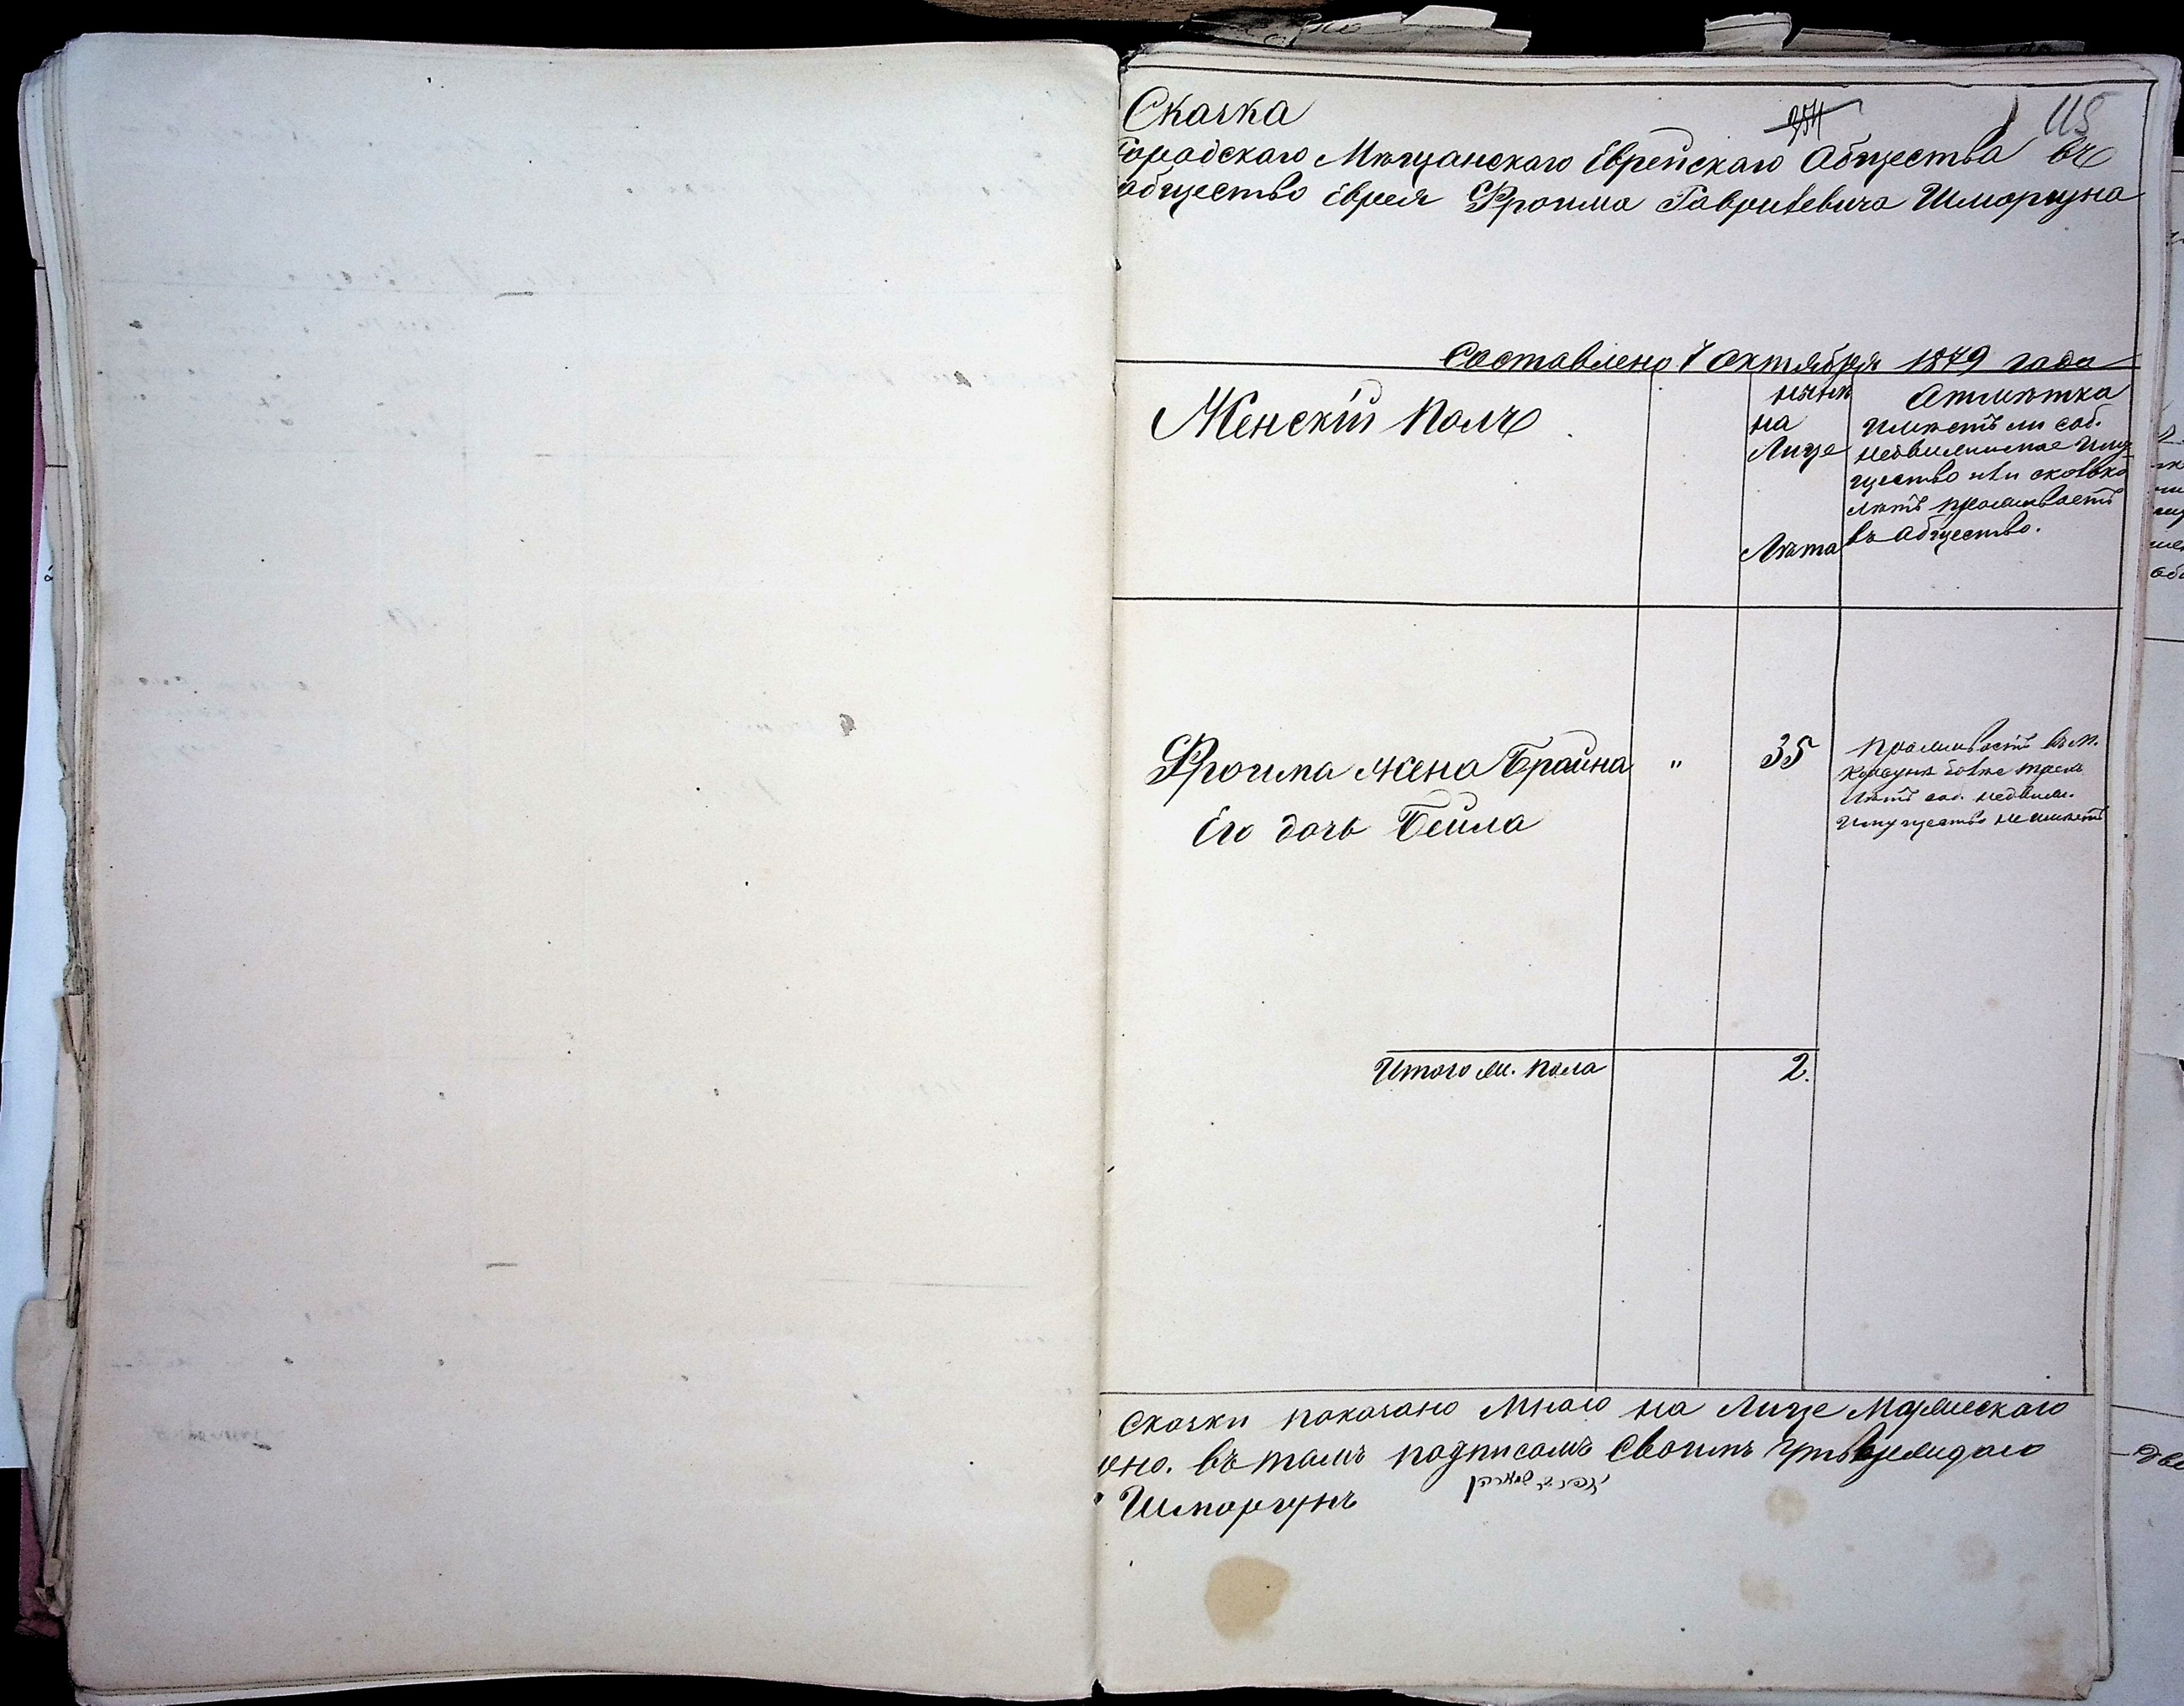 Сказка
254
115
Городскаго Мѣщанскаго Еврейскаго Абщества въ
общество Еврея Фроима Гаврилевича Шморгуна
Составлено 7 Октября 1879 года
Женскій Полъ
нынѣ
на
Лице
Лѣта
Атмѣтка
Имѣетъ ли соб.
недвижимое Иму
щество или сколько
лѣтъ проживаетъ
въ Абщество.
Фроима жена Браина " 35
Его дочь Бейла
Проживаетъ въ м.
болѣе трехъ
Лѣтъ соб. недвиж.
Имущество не имѣетъ
Итого ж. пола 2.
Сказки показано Мною на Лице Мормескаго
оно. въ томъ подписомъ Своимъ
Шморгунъ